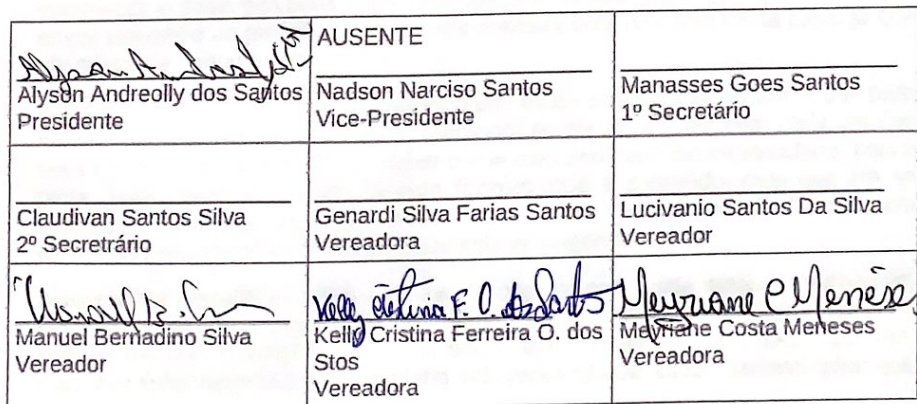 AUSENTE
Alyson Andreolly dos Santos
Presidente
Nadson Narciso Santos
Vice-Presidente
Manasses Goes Santos
1º Secretário
Claudivan Santos Silva
2º Secretrário
Genardi Silva Farias Santos
Vereadora
Lucivanio Santos Da Silva
Vereador
Manuel B.
Manuel Bernadino Silva
Vereador
Kelly Cristina F. O. dos Santos
Kelly Cristina Ferreira O. dos
Stos
Vereadora
Meyriane C Meneses
Meyriane Costa Meneses
Vereadora